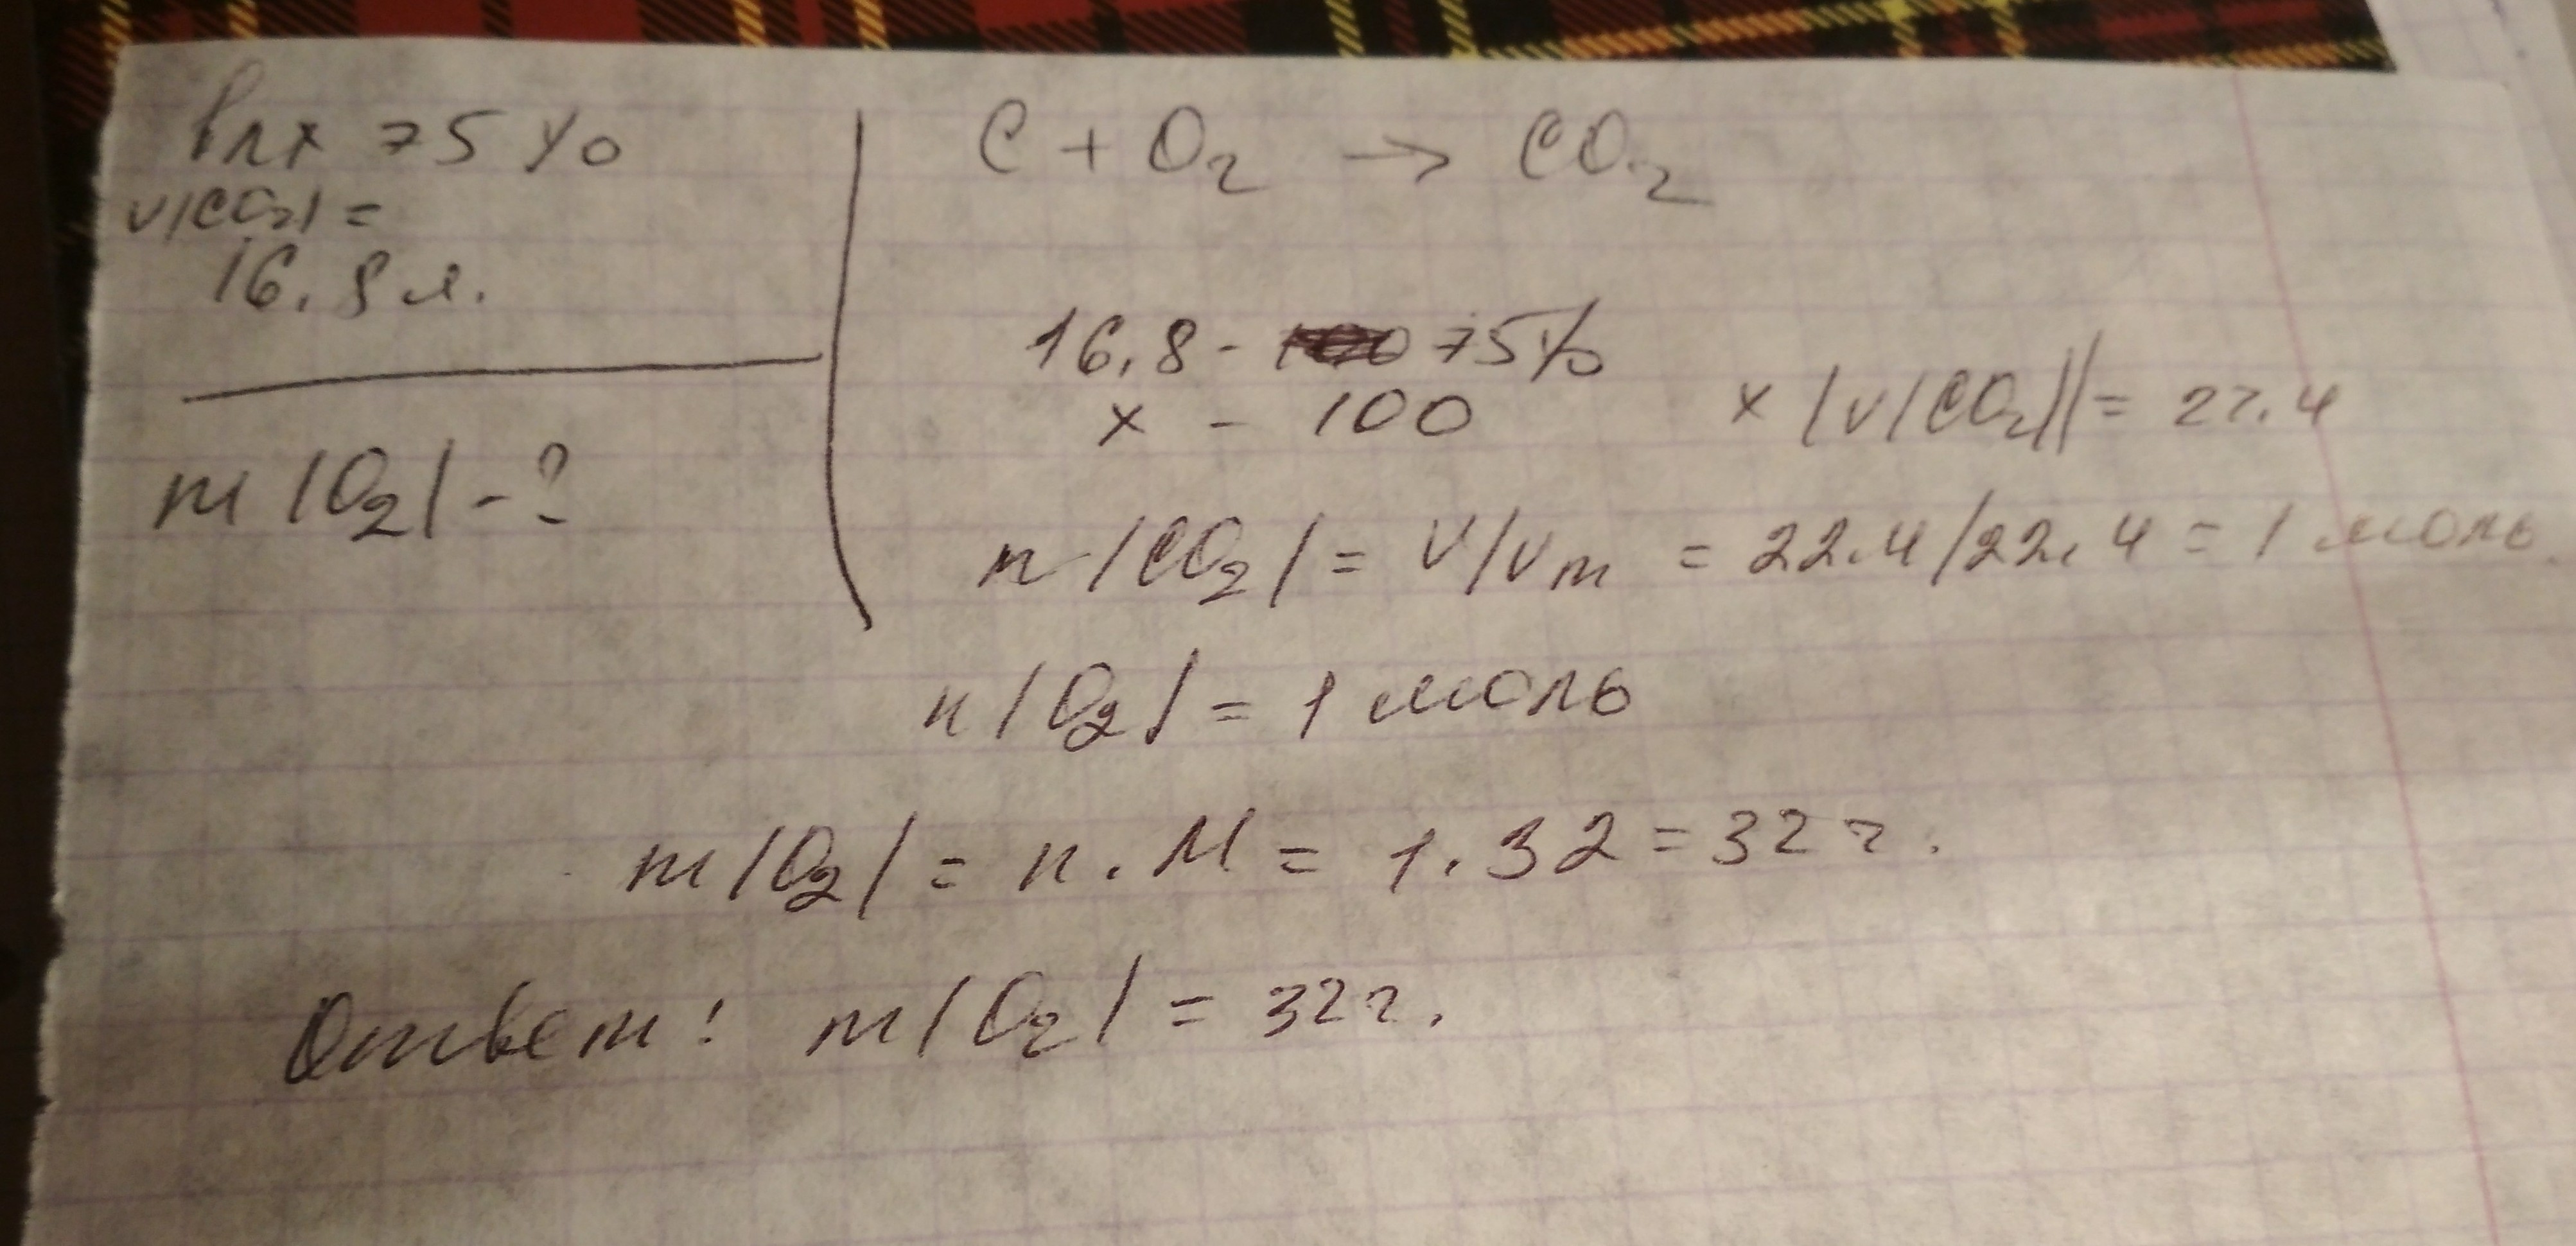 75%
V(CO2) =
16.8 л.
m (O2) - ?
C + O2 → CO2
16,8 - 75%
x - 100
x (V(CO2)) = 22.4
n (CO2) = V/Vm = 22.4/22,4 = 1 моль
n (O2) = 1 моль
m (O2) = n . M = 1 . 32 = 32 г.
Ответ: m (O2) = 32 г.